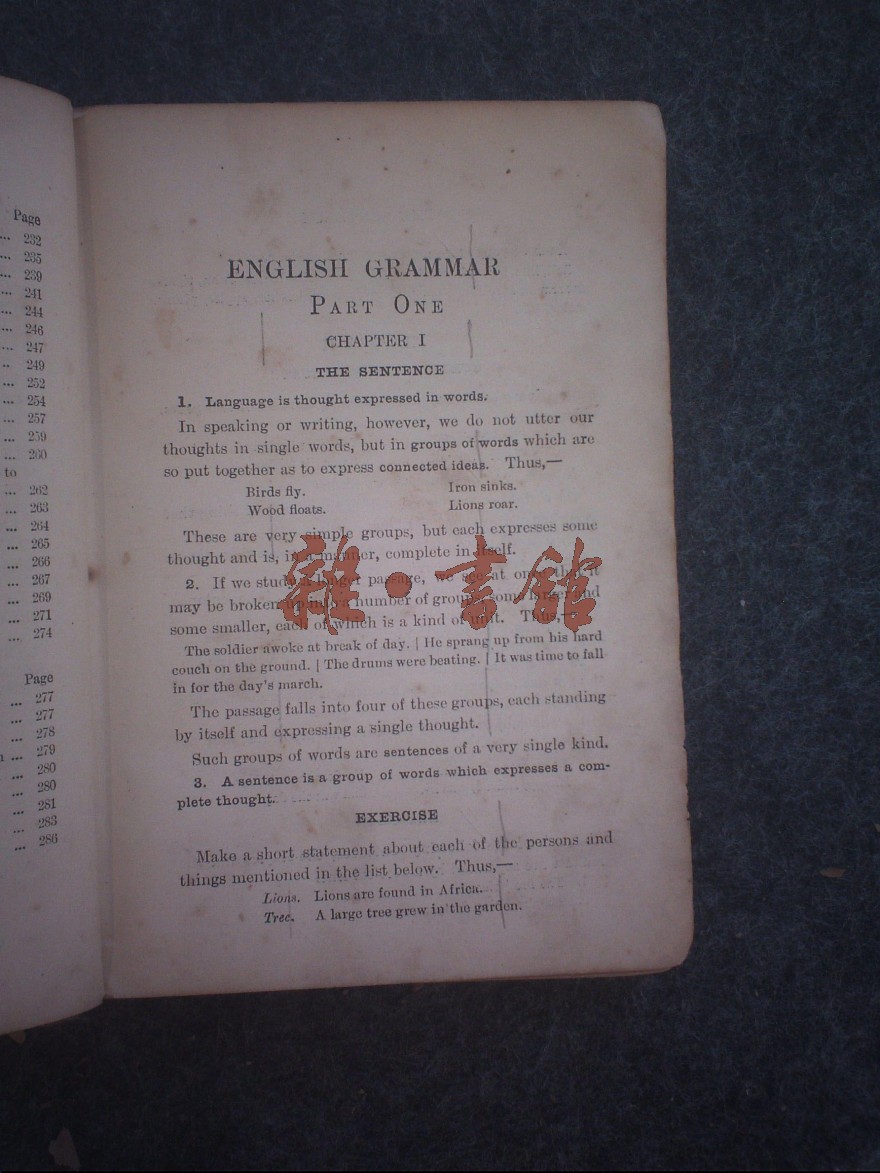 Page
... 232
... 235
... 239
... 241
... 244
... 246
... 247
.. 249
... 252
... 254
... 257
... 259
... 260
to
... 262
... 263
... 264
... 265
... 266
... 267
... 269
... 271
... 274
Page
... 277
... 277
... 278
... 279
... 280
... 280
... 281
... 283
... 286
ENGLISH GRAMMAR
PART ONE
CHAPTER I
THE SENTENCE
1. Language is thought expressed in words.
In speaking or writing, however, we do not utter our
thoughts in single words, but in groups of words which are
so put together as to express connected ideas. Thus,—
Birds fly. Iron sinks.
Wood floats. Lions roar.
These are very simple groups, but each expresses some
thought and is, in a manner, complete in itself.
2. If we study a longer passage, we see at once that it
may be broken up into a number of groups, some larger and
some smaller, each of which is a kind of unit. Thus,—
The soldier awoke at break of day. | He sprang up from his hard
couch on the ground. | The drums were beating. | It was time to fall
in for the day's march.
The passage falls into four of these groups, each standing
by itself and expressing a single thought.
Such groups of words are sentences of a very single kind.
3. A sentence is a group of words which expresses a com-
plete thought.
EXERCISE
Make a short statement about each of the persons and
things mentioned in the list below. Thus,—
Lions. Lions are found in Africa.
Tree. A large tree grew in the garden.
雜·書館